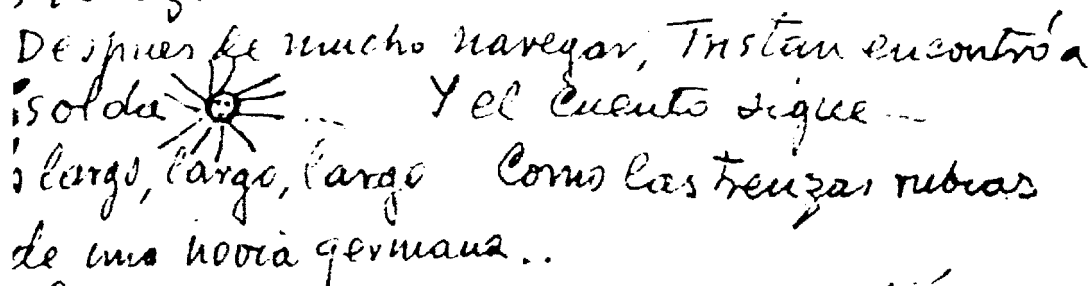 Despues de mucho navegar, Tristan encontró a
isolda ... Y el cuento sigue ...
largo, largo, largo Como las trenzas rubias
de una novia germana..